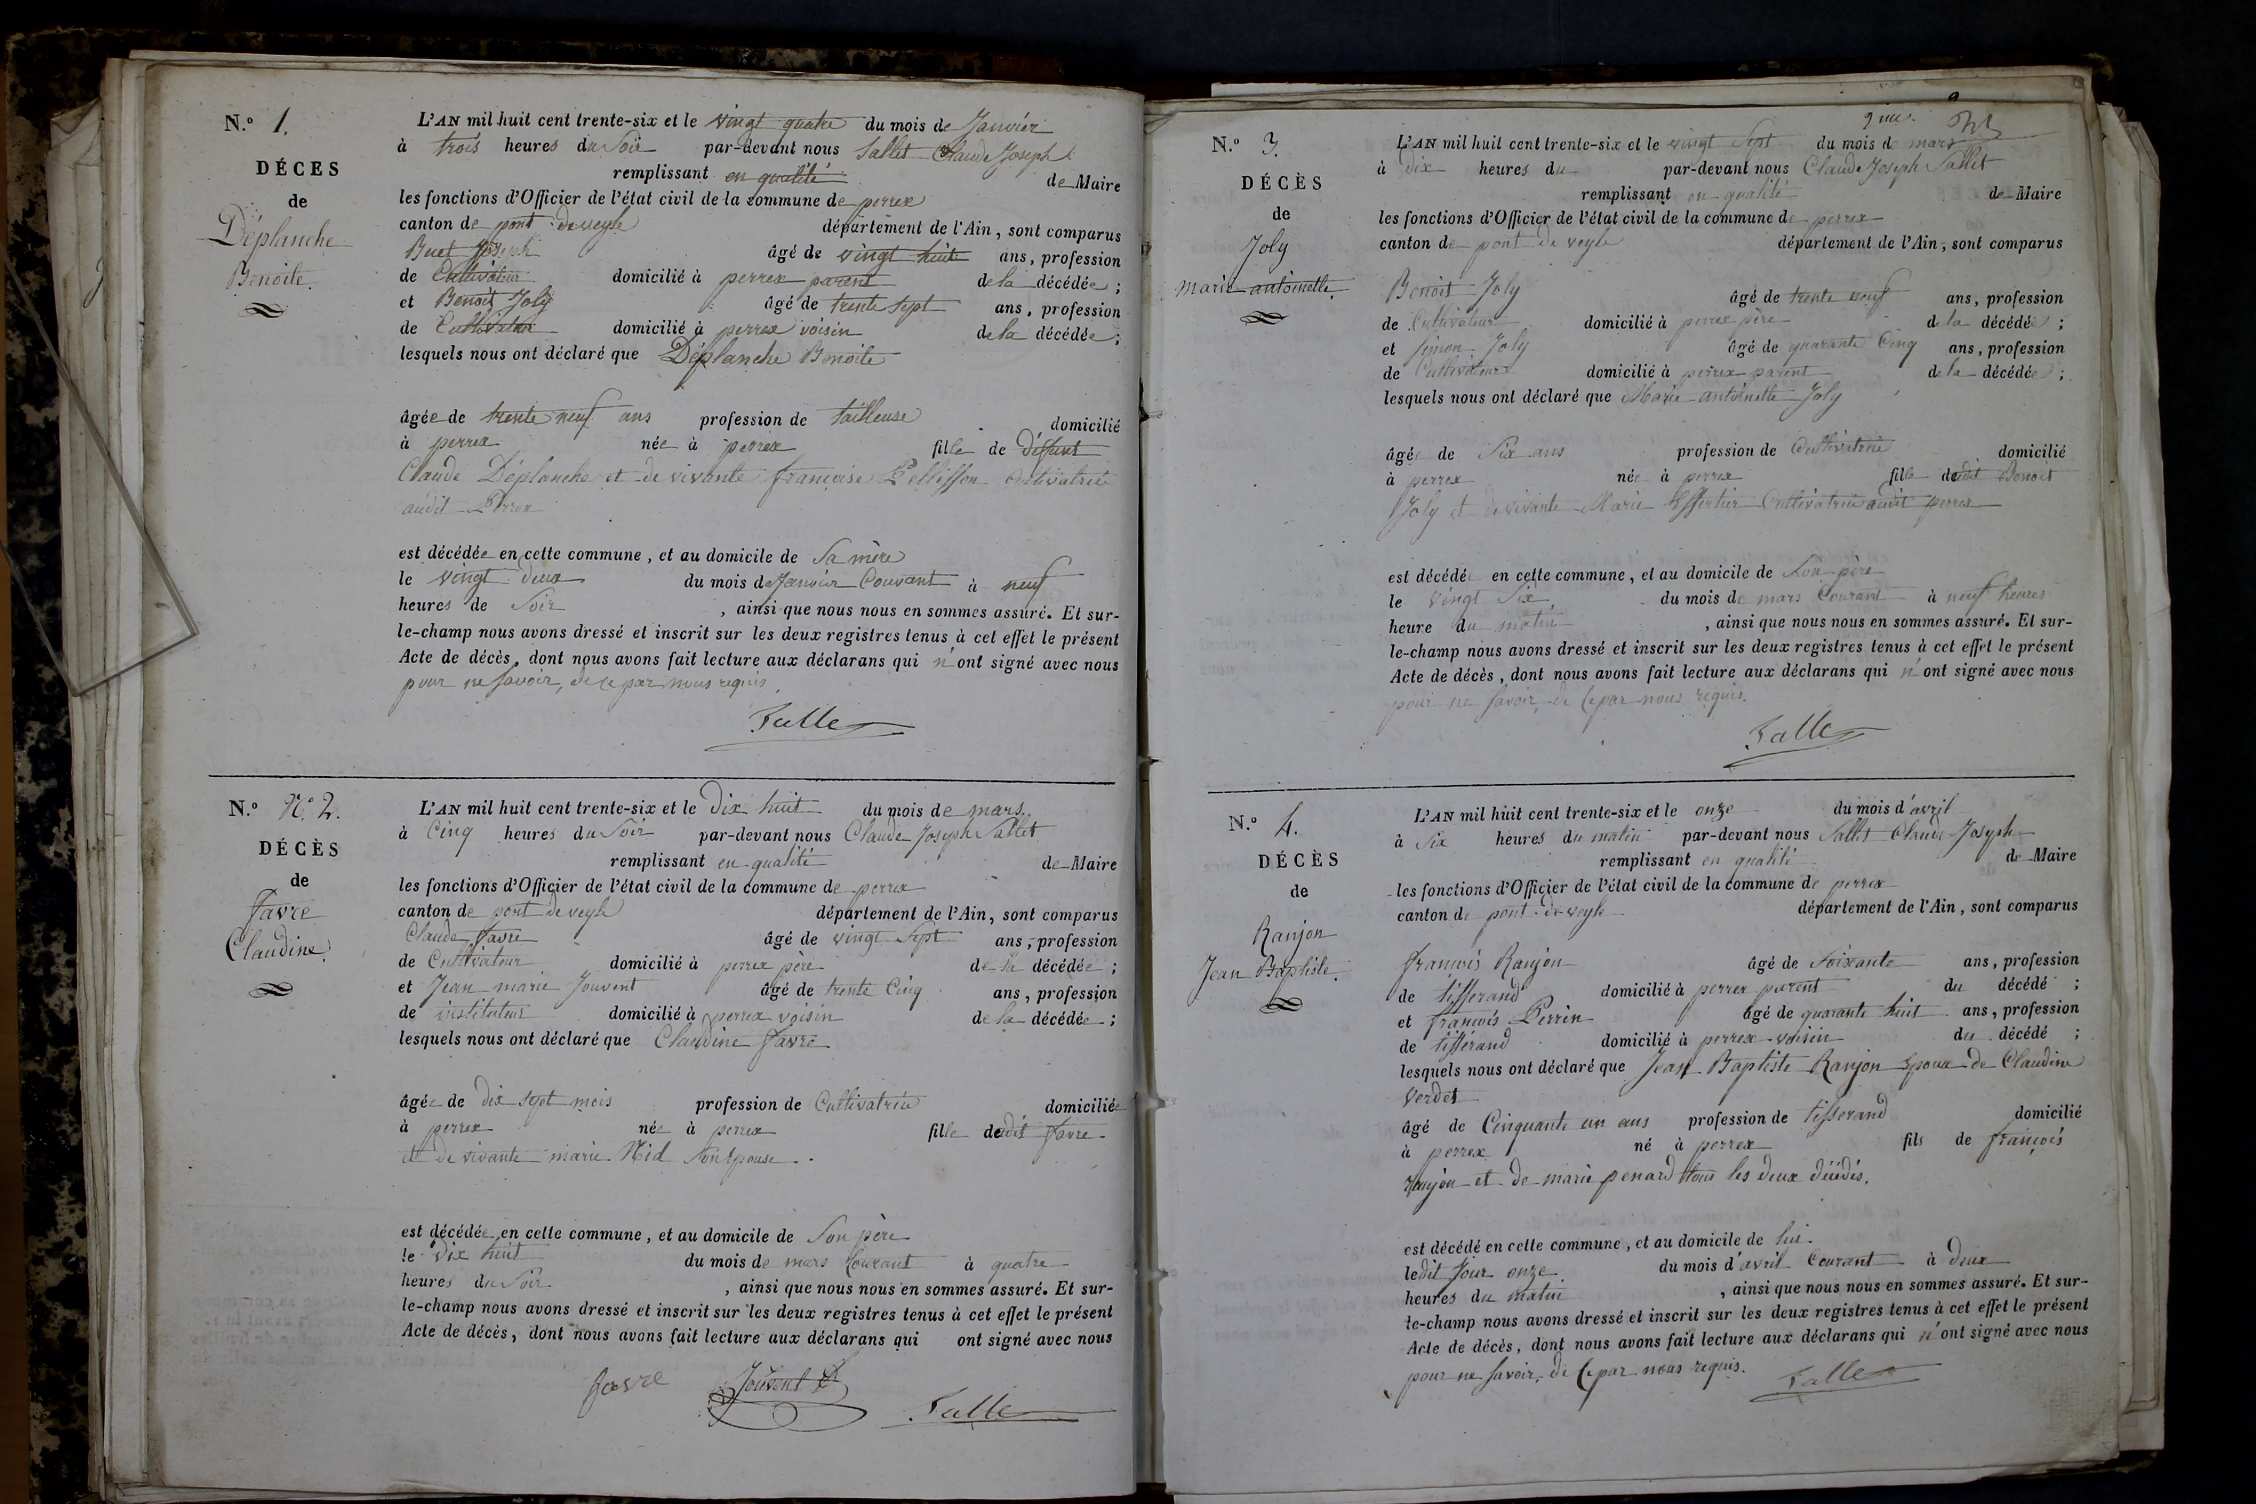 N.º 1.
DÉCES
de
Déplanche
Benoite.
L'AN mil huit cent trente-six et le vingt quatre du mois de Janvier
à trois heures du Soir par-devant nous Sallet Claude Joseph
remplissant en qualité de Maire
les fonctions d'Officier de l'état civil de la commune de perrex
canton de pont de veyle département de l'Ain, sont comparus
Buet Joseph âgé de vingt huit ans, profession
de Cultivateur domicilié à perrex parent de la décédée;
et Benoit Joly âgé de trente sept ans, profession
de Cultivateur domicilié à perrex voisin de la décédée;
lesquels nous ont déclaré que Déplanche Benoite
âgée de trente neuf ans profession de tailleuse domicilié
à perrex née à perrex fille de déffunt
Claude Déplanche et de vivante françoise Pellisson Cultivatrice
audit Perrex
est décédée en cette commune, et au domicile de Sa mère
le vingt deux du mois de Janvier Couvant à neuf
heures de Soir, ainsi que nous nous en sommes assuré. Et sur-
le-champ nous avons dressé et inscrit sur les deux registres tenus à cet effet le présent
Acte de décès, dont nous avons fait lecture aux déclarans qui n'ont signé avec nous
pour ne Savoir, de ce par nous requis.
Salle
N.º N.º 2.
DÉCÈS
de
Favre
Claudine.
L'AN mil huit cent trente-six et le Dix huit du mois de mars.
à Cinq heures du Soir par-devant nous Claude Joseph Sallet
remplissant en qualité de Maire
les fonctions d'Officier de l'état civil de la commune de perrex
canton de pont de veyle département de l'Ain, sont comparus
Claude Favre âgé de vingt Sept ans, profession
de Cultivateur domicilié à perrex père de la décédée;
et Jean marie Jouvent âgé de trente Cinq ans, profession
de instituteur domicilié à perrex voisin de la décédée;
lesquels nous ont déclaré que Claudine Favre
âgée de dix sept mois profession de Cultivatrice domiciliée
à perrex née à perrex fille dudit Favre
et de vivante marie Nid Son Epouse.
est décédée en cette commune, et au domicile de Son père
le Dix huit du mois de mars Courant à quatre
heures du Soir, ainsi que nous nous en sommes assuré. Et sur-
le-champ nous avons dressé et inscrit sur les deux registres tenus à cet effet le présent
Acte de décès, dont nous avons fait lecture aux déclarans qui ont signé avec nous
favre Jouvent Salle
N.º 3.
DÉCÈS
de
Joly
marie antoinette.
L'AN mil huit cent trente-six et le vingt Sept du mois de mars
à Dix heures du par-devant nous Claude Joseph Sallet
remplissant en qualité de Maire
les fonctions d'Officier de l'état civil de la commune de perrex
canton de pont de veyle département de l'Ain, sont comparus
Benoit Joly âgé de trente neuf ans, profession
de Cultivateur domicilié à perrex père de la décédée;
et Simon Joly âgé de quarante Cinq ans, profession
de Cultivateur domicilié à perrex parent de la décédée;
lesquels nous ont déclaré que Marie antoinette Joly
âgée de Six ans profession de Cultivatrice domicilié
à perrex née à perrex fille dudit Benoit
Joly et de vivante Marie Cultivatrice audit perrex
est décédé en cette commune, et au domicile de Son père
le vingt Six du mois de mars Courant à neuf heures
heure du matin, ainsi que nous nous en sommes assuré. Et sur-
le-champ nous avons dressé et inscrit sur les deux registres tenus à cet effet le présent
Acte de décès, dont nous avons fait lecture aux déclarans qui n'ont signé avec nous
pour ne Savoir, de Ce par nous requis.
Salle
N.º 4.
DÉCÈS
de
Ranjon
Jean Baptiste.
L'AN mil huit cent trente-six et le onze du mois d'avril
à Six heures du matin par-devant nous Sallet Claude Joseph
remplissant en qualité de Maire
les fonctions d'Officier de l'état civil de la commune de perrex
canton de pont-de-veyle département de l'Ain, sont comparus
françois Ranjon âgé de Soixante ans, profession
de tisserand domicilié à perrex parent du décédé;
et françois Perrin âgé de quarante huit ans, profession
de tisserand domicilié à perrex voisin du décédé;
lesquels nous ont déclaré que Jean Baptiste Ranjon Epoux de Claudine
Verdet
âgé de Cinquante un ans profession de tisserand domicilié
à perrex né à perrex fils de françois
ranjon et de marie penard tous les deux décédés.
est décédé en cette commune, et au domicile de lui.
ledit Jour onze du mois d'avril Courant à deux
heures du matin, ainsi que nous nous en sommes assuré. Et sur-
le-champ nous avons dressé et inscrit sur les deux registres tenus à cet effet le présent
Acte de décès, dont nous avons fait lecture aux déclarans qui n'ont signé avec nous
pour ne Savoir, de Ce par nous requis. Salle